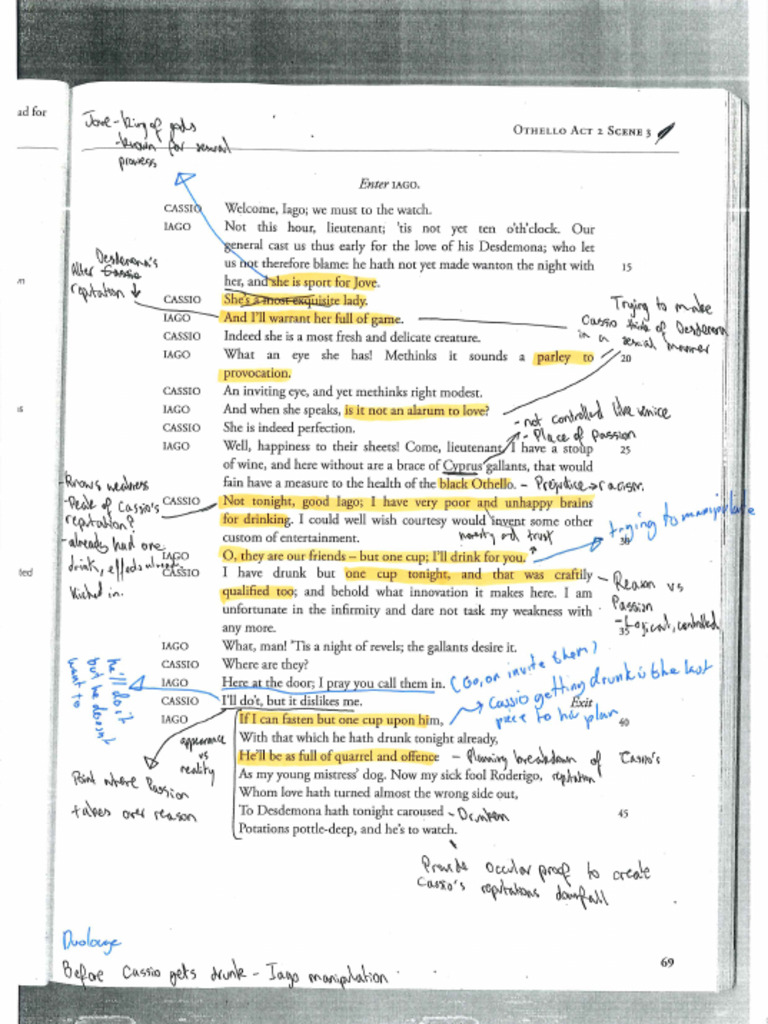 ad for
Jove - King of gods
- known for sexual
prowess
OTHELLO ACT 2 SCENE 3
Enter IAGO.
CASSIO Welcome, Iago; we must to the watch.
IAGO Not this hour, lieutenant; 'tis not yet ten o'th'clock. Our
general cast us thus early for the love of his Desdemona; who let
us not therefore blame: he hath not yet made wanton the night with 15
her, and she is sport for Jove.
Desdemona's
Alter Cassio
reputation ↓
CASSIO She's a most exquisite lady.
IAGO And I'll warrant her full of game.
Trying to make
Cassio think of Desdemona
in a sexual manner
CASSIO Indeed she is a most fresh and delicate creature.
IAGO What an eye she has! Methinks it sounds a parley to 20
provocation.
CASSIO An inviting eye, and yet methinks right modest.
IAGO And when she speaks, is it not an alarum to love?
- not controlled like venice
- Place of passion
CASSIO She is indeed perfection.
IAGO Well, happiness to their sheets! Come, lieutenant, I have a stoup 25
of wine, and here without are a brace of Cyprus gallants, that would
fain have a measure to the health of the black Othello. - Prejudice → racism.
- Knows weakness
- Peak of Cassio's
reputation?
- already had one
drink, effects already
kicked in.
CASSIO Not tonight, good Iago; I have very poor and unhappy brains
for drinking. I could well wish courtesy would invent some other
custom of entertainment. 30
honesty and trust
trying to manipulate
IAGO O, they are our friends – but one cup; I'll drink for you.
CASSIO I have drunk but one cup tonight, and that was craftily
qualified too; and behold what innovation it makes here. I am
unfortunate in the infirmity and dare not task my weakness with
any more. 35
- Reason vs
Passion
- Logical, controlled
IAGO What, man! 'Tis a night of revels; the gallants desire it.
CASSIO Where are they?
IAGO Here at the door; I pray you call them in. (Go, on invite them)
CASSIO I'll do't, but it dislikes me. Exit
he'll do it
but he doesn't
want to
Cassio getting drunk is the last
piece to his plan
IAGO If I can fasten but one cup upon him, 40
With that which he hath drunk tonight already,
He'll be as full of quarrel and offence - Planning breakdown of Cassio's
reputation
As my young mistress' dog. Now my sick fool Roderigo,
Whom love hath turned almost the wrong side out,
To Desdemona hath tonight caroused - Drunken 45
Potations pottle-deep, and he's to watch.
appearance
vs
reality
Point where Passion
takes over reason
Provide occular proof to create
Cassio's reputations downfall
Duologue
Before Cassio gets drunk - Iago manipulation
69